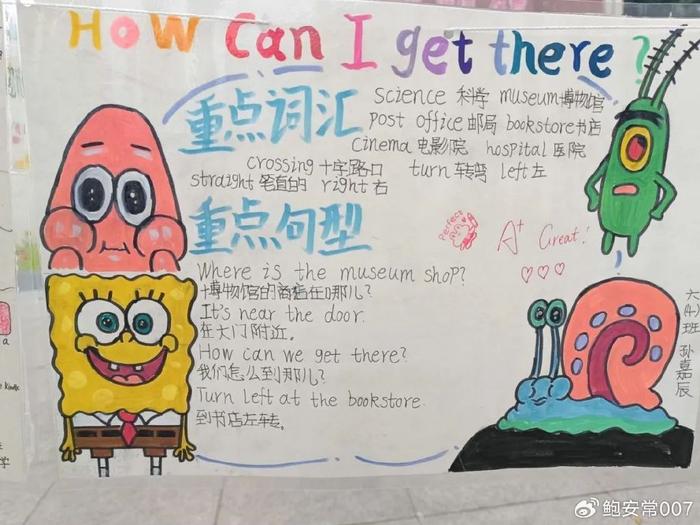 How Can I get there?
重点词汇
science 科学 museum博物馆
post office 邮局 bookstore书店
Cinema 电影院 hospital 医院
crossing 十字路口 turn 转弯 left 左
straight 笔直的 right 右
重点句型
Perfect
A+ Great!
Where is the museum shop?
博物馆的商店在哪儿?
It's near the door.
在大门附近。
How can we get there?
我们怎么到那儿?
Turn left at the bookstore
到书店左转。
六(4)班 孙嘉辰
@鲍安常007